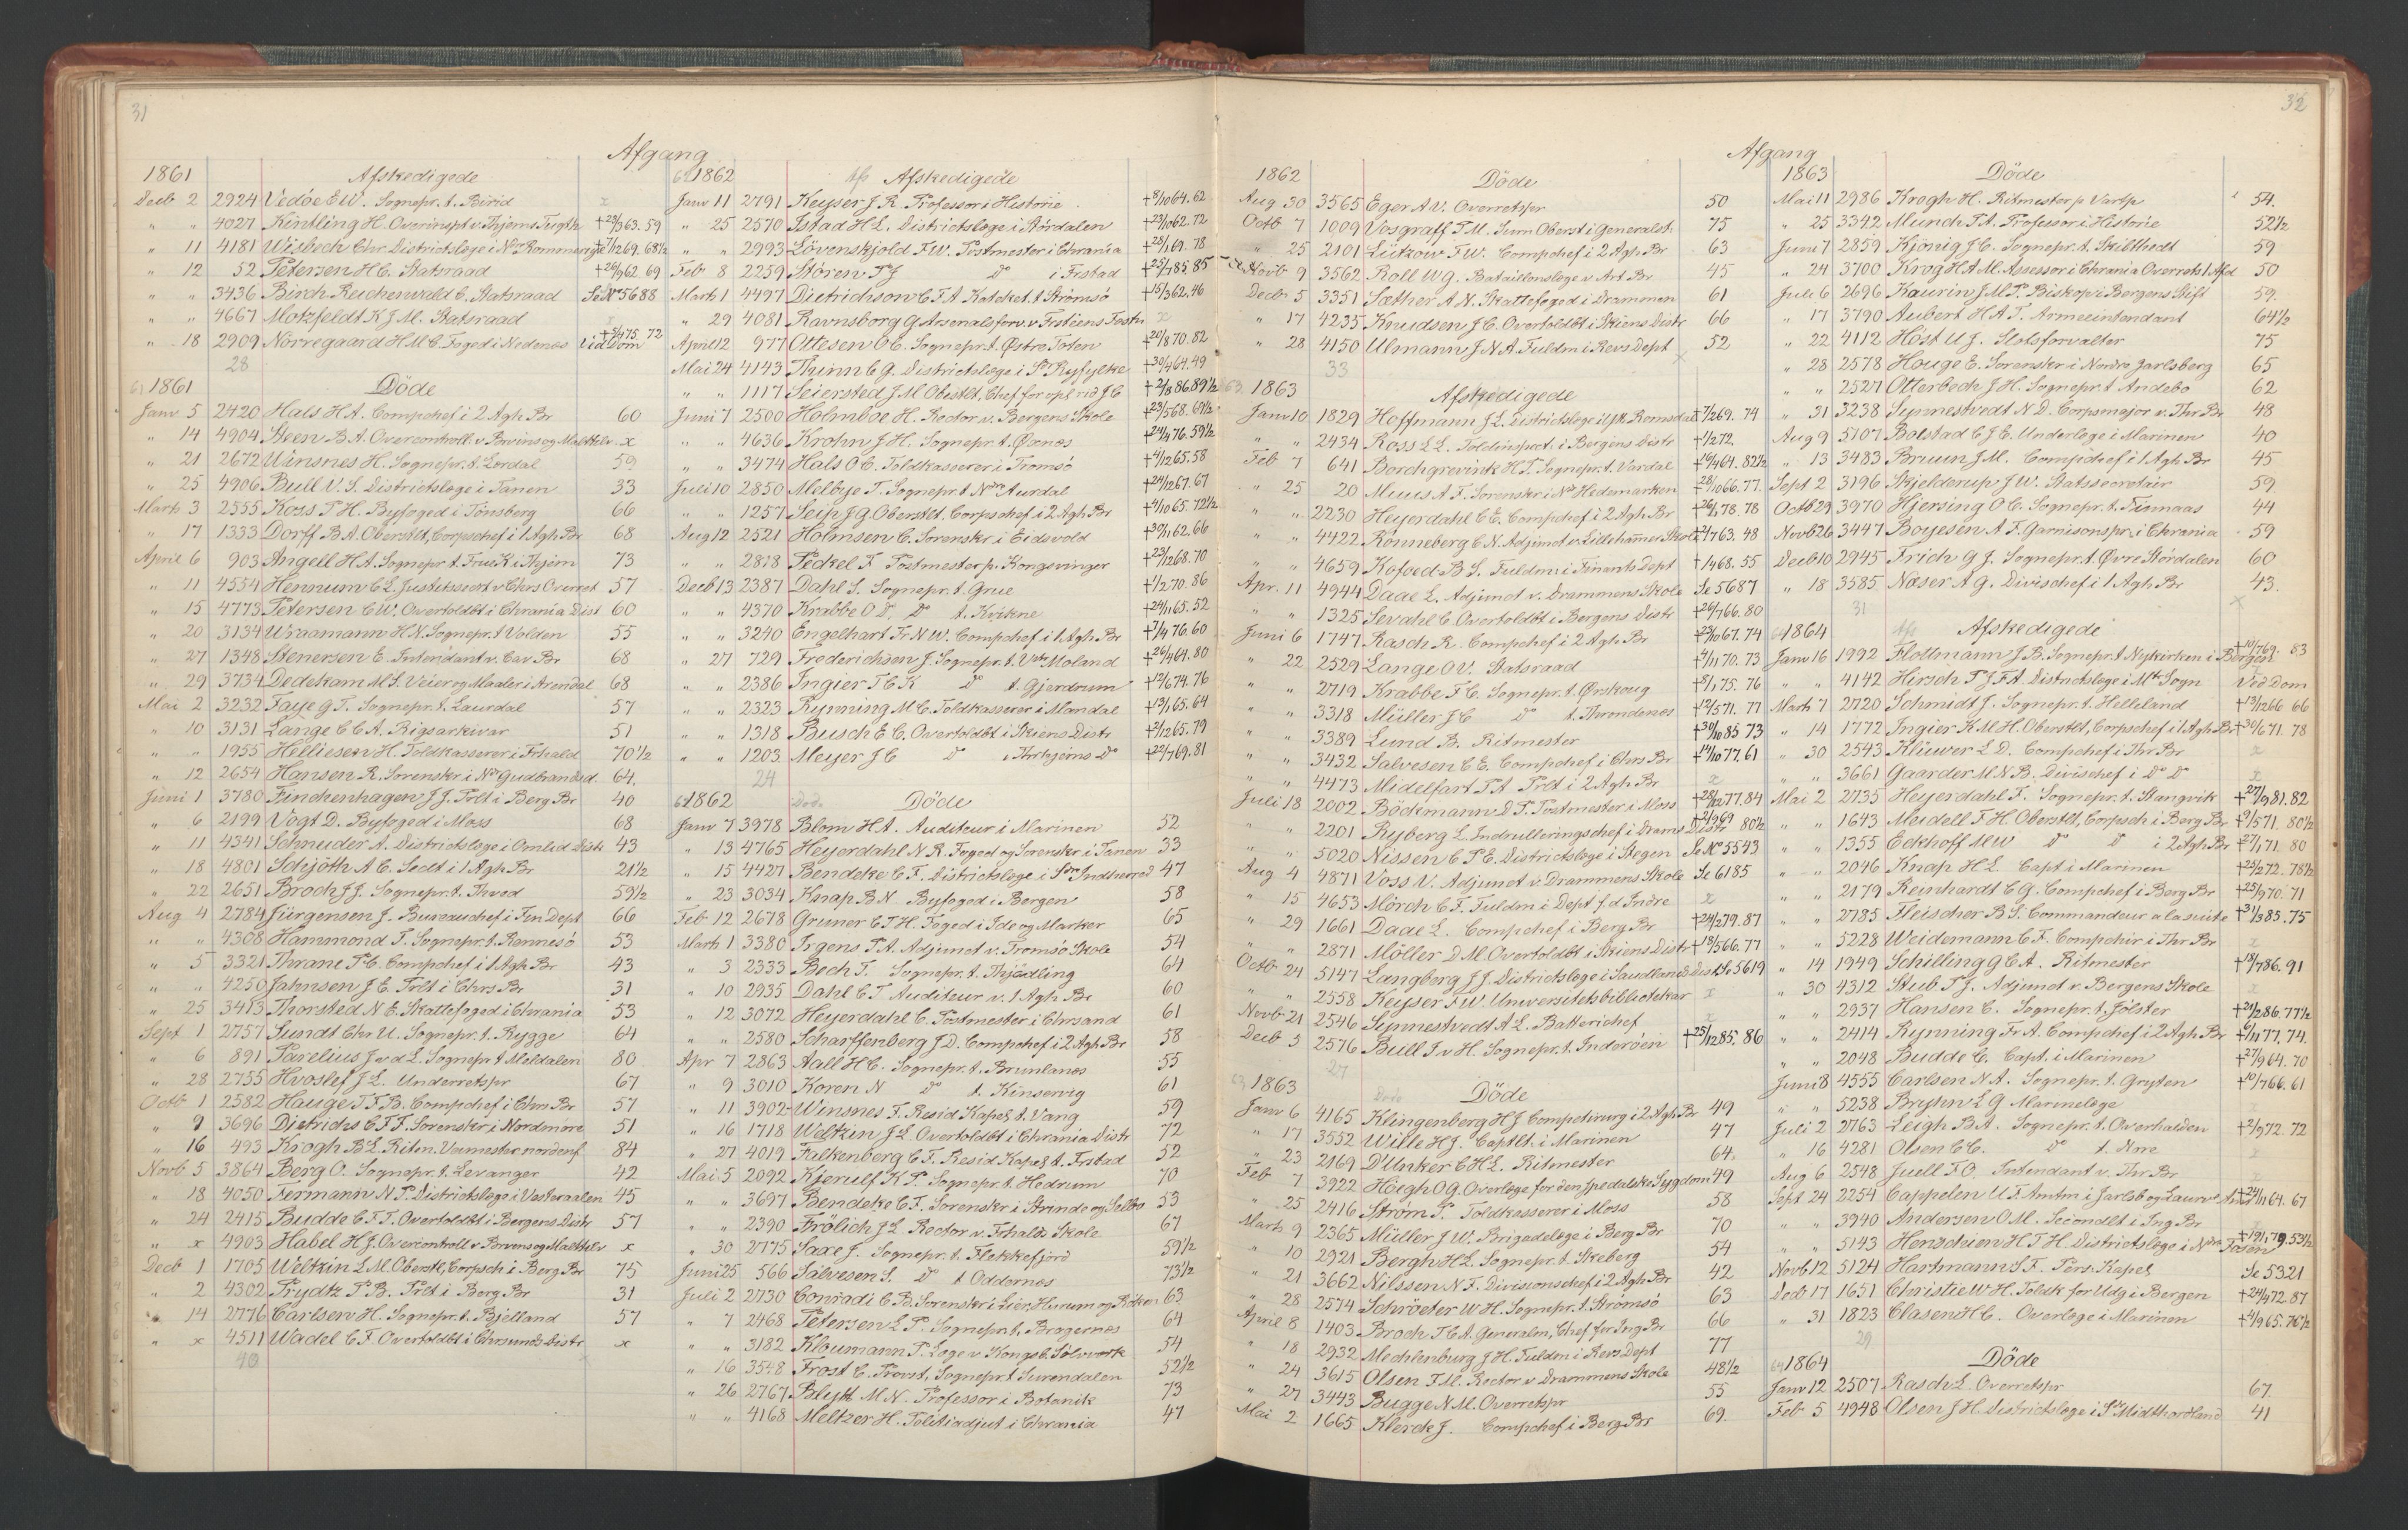 31
Afgang
1861 Afskedigede
Decb 2 2924 Vedöe E W. Sognepr. t. Birid x
" " 4027 Kintling H. Overinspt v. Thjems Tugth +29/3 63. 59
" 11 4181 Wisbech Chr. Districtslæge i Nre Rommerige +7/12 69. 68½
" 12 52 Petersen H C. Statsraad +26/7 62 69
" " 3436 Birch Reichenwald C. Statsraad Se No 5688
" " 4667 Motzfeldt K J M. Statsraad x
" 18 2909 Nörregaard H M C. Foged i Nedenæs Ved Dom +5/4 75. 72
28
61 1861 Döde
Janv 5 2420 Hals H A. Compchef i 2 Agh Br 60
" 14 4904 Steen B A. Overcontroll. v. Brvins og Malttilv. x
" 21 2672 Winsnes H. Sognepr. t. Lordal 59
" 25 4906 Bull V. S. Districtslæge i Tanen 33
Marts 3 2555 Ross P H. Byfoged i Tönsberg 66
" 17 1333 Dorff B A. Oberstlt, Corpschef i 1 Agh Br 68
April 6 903 Angell H A. Sognepr. t. Frue K i Thjem 73
" 11 4554 Hennum C L. Justitssecrt v Chrs Overret 57
" 15 4773 Petersen C W. Overtoldbt i Chrania Dist 60
" 20 3134 Wraamann H N. Sognepr. t Volden 55
" 27 1348 Stenersen E. Intendant v. Cav Br 68
" 29 3734 Dedekam M S. Veier og Maaler i Arendal 68
Mai 2 3232 Faye G T. Sognepr. t. Laurdal 57
" 10 3131 Lange C C A. Rigsarkivar 51
" " 1955 Helliesen H. Toldkasserer i Frhald 70½
" 12 2654 Hansen R. Sorenskr i Nr Gudbrandsd. 64.
Juni 1 3780 Finckenhagen J J. Prlt i Berg Br 40
" 6 2199 Vogt D. Byfoged i Moss 68
" 11 4541 Schneider A. Districtslæge i Omlid Distr 43
" 18 4801 Schjöth A C. Seclt i 1 Agh Br 21½
" 22 2651 Broch J J. Sognepr. t. Thved 59½
Aug 4 2784 Jürgensen J. Bureauchef i Fin Dept 66
" " 4308 Hammond T. Sognepr. t. Rennesö 53
" 5 3321 Thrane P C. Compchef i 1 Agh Br 43
" " 4250 Jahnsen J E. Prlt i Chrs Br 31
" 25 3413 Thorsted N E. Skattefoged i Chrania 53
Sept 1 2757 Sundt Chr U. Sognepr. t. Rygge 64
" 6 891 Pavelius J v d L. Sognepr t Moldalen 80
" 28 2755 Hvoslef J L. Underretspr 67
Octb 1 2582 Hauge T F B. Compchef i Chrs Br 57
" 9 3696 Dietrichs C F F. Sorenskr i Nordmöre 51
" 16 493 Krogh B L. Ritm. Vaumester nordenf 84
Novb 5 3864 Berg O. Sognepr. t. Levanger 42
" 18 4050 Fermann N P. Districtslæge i Vesteraalen 45
" 24 2415 Budde C F T. Overtoldbt i Bergens Distr 57
" x 4903 Habel H J. Overcontroll v. Brvens og Malttilv x
Decb 1 1705 Weltzin L M. Oberstlt, Corpsch i Berg Br 75
" 2 4302 Prydtz P B. Prlt i Berg Br 31
" 14 2776 Carlsen H. Sognepr. t. Bjelland 57
" x 4511 Wadel C F. Overtoldbt i Chrsunds Distr x
40
62 1862 Afs Afskedigede
Janv 11 2791 Keyser J R. Professor i Historie +8/10 64. 62
" 25 2570 Istad H L. Districtslæge i Stördalen +23/10 62. 72
" " 2993 Lövenskjold F W. Postmester i Chrania +28/1 69. 78
Feb 8 2259 Stören P J Do i Frstad +25/7 85 85
Marts 1 4497 Dietrichson C F A Katechet. t Strömsö +15/3 62. 46
" 29 4081 Ravnsborg G Arsenalsforv. v Frstéens Festn x
April 12 977 Ottesen O C. Sognepr. t. Østre Toten +20/8 70. 82
Mai 24 4143 Thinn C G. Districtslæge i Sr Ryfylke +30/4 64. 49
" " 1117 Seiersted J M Obestlt, Chef for opl. rid J C +2/8 86. 89½
Juni 7 2500 Holmboe H. Rector v. Bergens Skole +23/5 68. 69½
" " 4636 Krohn J H. Sognepr. t. Øxnæs +24/4 76. 59½
" " 3474 Hals O C. Toldkasserer i Tromsö +4/12 65. 58
Juli 10 2850 Melbye T. Sognepr. t Ndre Aurdal +24/12 67. 67
" " 1257 Seip J G. Oberstlt. Corpschef i 2 Agh Br +4/10 65. 72½
Aug 12 2521 Holmsen C. Sorenskr i Eidsvold +30/1 62. 66
" " 2878 Peckel F Postmester p. Kongsvinger +23/12 68. 70
Decb 13 2387 Dahl S. Sognepr. t. Grue +1/2 70. 86
" " 4370 Krabbe O D. Do t. Kvikne +24/1 65. 52
" " 3240 Engelhart Fr N W. Compchef i 1 Agh Br +7/4 76. 60
" 27 729 Frederichsen J. Sognepr. t. Vstr Moland +26/4 64. 80
" " 2386 Ingier T C K Do t. Gjerdrum +12/6 74. 76
" " 2323 Rynning M C. Toldkasserer i Mandal +13/1 65. 64
" " 1318 Busch E C. Overtoldbt i Skiens Distr +2/12 65. 79
" " 1203 Meyer J C Do i Thrhjems Do +22/7 69. 81
24
62 1862 Döde Döde
Janv 7 3978 Blom H A. Auditeur i Marinen 52
" 13 4765 Heyerdahl N R. Foged og Sorenskr i Tanen 33
" 15 4427 Bendeke C F. Districtslæge i Sdr Indherred 47
" 23 3034 Knap B N. Byfoged i Bergen 58
Feb 12 2678 Gruner C T H. Foged i Ide og Marker 65
Marts 1 3380 Irgens P A. Adjunct v. Tromsö Skole 54
" 3 2333 Bech T. Sognepr. t. Thjödling 64
" 10 2935 Dahl C T. Auditeur v. 1 Agh Br 60
" 12 3072 Heyerdahl C. Postmester i Chrsand 61
" " 2580 Scharffenberg J D. Compchef i 2 Agh Br 58
Apr 7 2863 Aall H C. Sognepr. t. Brunlanæs 55
" 9 3010 Koren N Do t. Kinservig 61
" 11 3902 Winsnes F. Resid Kapel. t. Vang 59
" 16 1718 Weltzin J L. Overtoldbt i Chrania Distr 72
" 27 4019 Falkenberg C F. Resid Kapel. t. Frstad 52
Mai 5 2092 Kjerulf K P. Sognepr. t. Hedrum 70
" " 3697 Bendeke C F. Sorenskr i Strinde og Selbo 53
" " 2390 Frölich J L. Rector v. Frhalds Skole 67
" 30 2775 Saxe J. Sognepr. t. Flekkefjord 59½
Juni 25 566 Salvesen S. Do t Oddernæs 73½
Juli 2 2730 Conradi C B. Sorenskr i Lier, Hurum og Röken 63
" 7 2468 Petersen L P. Sognepr. t. Bragernæs 64
" " 3182 Kloumann P. Læge v Kongsb. Sölvverk 54
" 16 3548 Frost C. Provst, Sognepr. t Surendalen 52½
" 26 2767 Blytt M N. Professor i Botanik 73
" " 4168 Meltzer H. Politiadjut i Chrania 47
32
Afgang
1862 Döde
Aug 30 3565 Eger A V. Overretspr 50
Octb 7 1009 Vosgraff T M. Surn Oberst i Generalst. 75
" 25 2101 Lützow F W. Compchef i 2 Agh Br 63
Novb 9 3562 Roll W G. Bataillonslæge v Art Br 45
Decbr 5 3351 Sæther A N. Skattefoged i Drammen 61
" 17 4235 Knudsen J C. Overtoldbt i Skiens Distr 66
" 28 4150 Ulmann J N A. Fuldm i Revs Dept 52
33
63 1863 Afskedigede
Janv 10 1829 Hoffmann J L. Districtslæge i Ydre Romsdal +7/2 69. 74
" " 2434 Ross L L. Toldinsprt. i Bergens Distr +1/2 72.
Feb 7 641 Borchgrevink H P. Sognepr. t. Vardal +16/4 64. 82½
" 25 20 Muus A F. Sorenskr i Nr Hedemarken +28/10 66. 77.
" " 2230 Heyerdahl C E. Compchef i 2 Agh Br +26/1 78. 78
" " 4422 Rönneberg C N. Adjunct v. Lillehamer Skole +21/7 63. 48
" " 4659 Kofoed B S. Fuldm i Finants Dept +1/4 68. 55
Apr. 11 4944 Daae L. Adjunct v. Drammens Skole Se 5687
" " 1325 Sevahl C. Overtoldbt i Bergens Distr +26/7 66. 80
Juni 6 1747 Rasch R. Compchef i 2 Agh Br +23/10 67. 74
" 22 2529 Lange O V. Statsraad +4/11 70. 73
" " 2719 Krabbe F C. Sognepr. t. Ørskoug +8/1 75. 76
" " 3318 Müller J C Do t. Throndenæs +12/5 71. 77
" " 3389 Lund B. Ritmester +30/10 85 73
" " 3432 Salvesen C E. Compchef i Chrs Br +14/10 77. 61
" " 4473 Midelfart P A Prlt i 2 Agh Br x
Juli 18 2002 Bödtmann D P. Postmester i Moss +28/12 77. 84
" " 2201 Ryberg L. Indrulleringschef i Drams Distr +2/9 69 80½
" " 5020 Nissen C P E. Districtslæge i Stegen Se No 5543
Aug 4 4871 Voss V. Adjunct v. Drammens Skole Se 6185
" 15 4653 Mörch C F. Fuldm i Dept f. d. Indre x
" 29 1661 Daae L. Compchef i Berg Br +24/2 79. 87
" " 2871 Möller D M. Overtoldbt i Skiens Distr +18/5 66. 77
Octb 24 5147 Langberg J J. Districtslæge i Saudlands Dist Se 5619
" " 2558 Keyser F W Universitetsbibliotekar x
Novb 21 2546 Synnestvedt A L. Batterichef x
Decb 5 2576 Bull J v H. Sognepr. t. Inderöen +25/12 85. 86
27
63 1863 Döde Döde
Janv 6 4165 Klingenberg H J Compchirurg i 2 Agh Br 49
" 17 3552 Wille H J. Captlt. i Marinen 47
" 23 2169 D'Unker C H L. Ritmester 64.
Feb 7 3922 Höegh O G. Overlæge for den spedalske Sygdom 49
" 25 2416 Ström P. Toldkasserer i Moss 58
Marts 9 2365 Müller J W. Brigadelæge i Berg Br 70
" 10 2921 Bergh H L. Sognepr. t. Skeberg 54
" 21 3662 Nilssen N F. Divisionschef i 2 Agh Br 42
" 28 2574 Schröeter W H. Sognepr. t. Strömsö 63
April 8 1403 Broch T C A. Generalm, Chef for Ing Br 66
" 18 2932 Mechlenburg J H. Fuldm i Revs Dept 77
" 24 3615 Olsen F M. Rector v Drammens Skole 48½
" 27 3443 Bugge N M. Overretspr 55
Mai 2 1665 Klerck J. Compchef i Berg Br 69.
1863 Döde
Mai 11 2986 Krogh H. Ritmester p Vartp 54.
" 25 3342 Munch P A. Professor i Historie 52½
Juni 7 2859 Kjönig J C. Sognepr. t. Skibthvedt 59
" 24 3700 Krog H A M. Assessor i Chrania Overrets 1 Afd 50
Juli 6 2696 Kaurin J M P. Biskop i Bergens Stift 59.
" 17 3790 Aubert H A T. Armeeintendant 64½
" 22 4112 Höst U J. Slotsforvalter 75
" 28 2578 Houge E. Sorenskr i Nordre Jarlsberg 65
" " 2527 Otterbech J H. Sognepr. t. Andebo 62
" 31 3238 Synnestvedt N D. Corpsmajor v. Thr Br 48
Aug 9 5107 Bolstad C J E. Underlæge i Marinen 40
" 13 3483 Bruun J M. Compchef i 1 Agh Br 45
Sept 2 3196 Skjelderup J W. Statssecretair 59.
Octb 29 3970 Hjersing O C. Sognepr. t. Finnaas 44
Novb 26 3447 Boyesen A F. Garnisonspr, i Chrania 59
Decb 10 2945 Frich G J. Sognepr. t. Øvre Stördalen 60
" 18 3585 Næser A G. Divischef i 1 Agh Br 43.
31
64 1864 Afs Afskedigede
Janv 16 1992 Flottmann J B. Sognepr. t Nykirken i Bergen +10/7 69. 83
" " 4142 Hirsch P J F A. Districtslæge i Mdt Sogn Ved Dom
Marts 7 2720 Schmidt J. Sognepr. t. Helleland +13/12 66 66
" 14 1772 Ingier K M H. Oberstlt, Corpschef i 1 Agh Br +30/6 71. 78
" 30 2543 Klüwer L D. Compchef i Thr Br x
" " 3661 Gaarder M N B. Divischef i Do Do x
Mai 2 2735 Heyerdahl F. Sognepr. t. Stangvik +27/9 81. 82
" " 1643 Meidell F H Oberstlt, Corpsch i Berg Br +9/5 71. 80½
" " 1355 Eckhoff M W Do Do i 2 Agh Br +27/1 71. 80
" " 2046 Knap H L Capt i Marinen +25/2 72. 78½
" " 2179 Reinhardt C G. Compchef i Berg Br +25/9 70. 71
" " 2785 Fleischer B S. Commandeur a la suite +31/3 85. 75
" " 5228 Weidemann C F. Compchir i Thr Br x
" 14 1949 Schilling G C A. Ritmester +18/7 86. 91
" 30 4312 Stub P J. Adjunct v. Bergens Skole x
" " 2937 Hansen C. Sognepr. t. Jölster +24/2 86. 77½
" " 2414 Rynning Fr A. Compchef i 2 Agh Br +6/11 77. 74.
" " 2048 Budde C. Capt. i Marinen +27/9 64. 70
Juni 8 4555 Carlsen N A. Sognepr. t. Gryten +10/7 66. 61
" " 5238 Bryhn L G Marinelæge x
Juli 2 2763 Leigh B A. Sognepr. t. Overhalden +2/9 72. 72
" 16 4281 Olsen C C. Do t. Are x
Aug 6 2548 Juell F O. Intendant v. Thr Br x
Sept 24 2254 Cappelen U F. Amtm i Jarlsb og Laurvs Amt +24/11 64. 67
" " 3940 Andersen O M. Secondlt i Ing Br x
" " 5143 Henschien H T H. Districtslæge i Ndre Fosen +19/1 79. 53½
Novb 12 5124 Hartmann S F. Pers. Kapel. Se 5321
Decb 17 1651 Christie W H. Toldk for Udg i Bergen +24/4 72. 87
" 31 1823 Clasen H C. Overlæge i Marinen +4/9 65. 76½
29
64 1864 Döde
Janv 12 2507 Rasch L Overretspr 67.
Feb 5 4948 Olsen J H. Districtslæge i Sr Midthordland 41